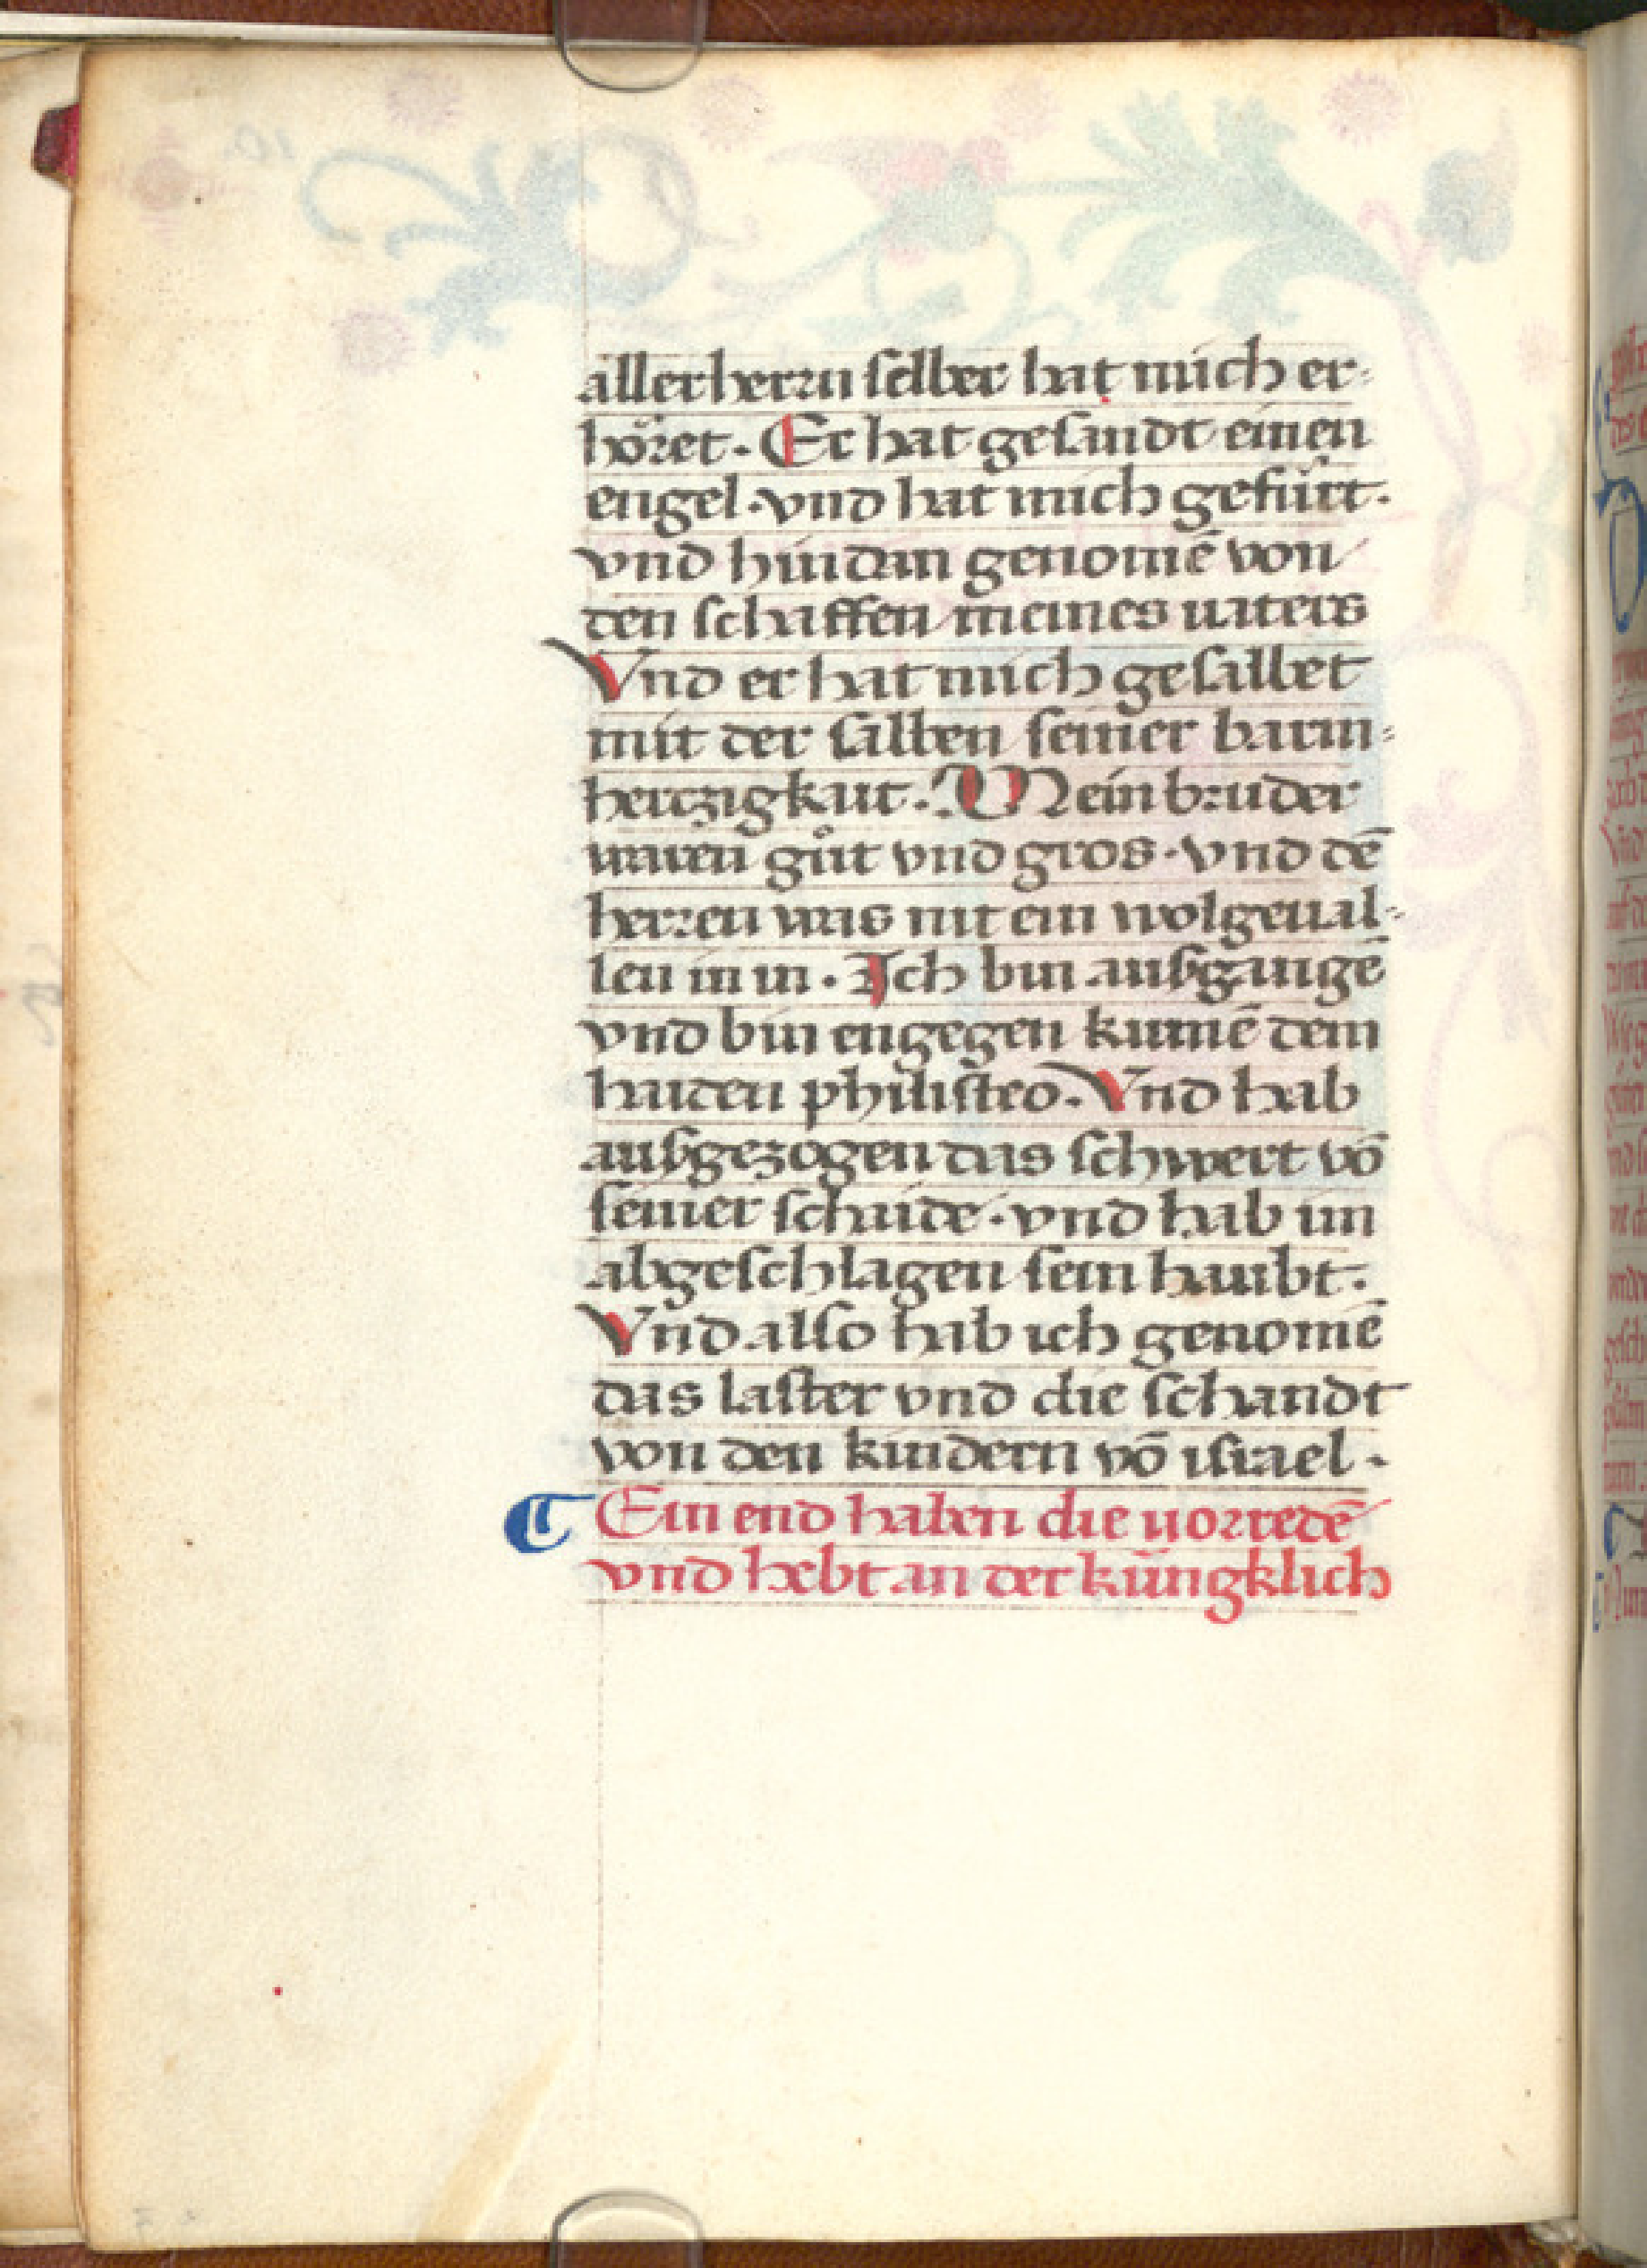 aller herrn selber hat mich er=
höret. Er hat gesandt einen
engel. vnd hat mich gefürt.
vnd hindan genomē von
den schaffen meines uaters
Vnd er hat mich gesalbet
mit der salben seiner barm=
hertzigkait. Mein bruder
waren gůt vnd gros. vnd dē
herren was nit ein wolgeual=
len in in. Ich bin ausgangē
vnd bin engegen kumē dem
haiden philisteo. Vnd hab
ausgezogen das schwert vō
seiner schaide. vnd hab im
abgeschlagen sein haubt.
Vnd also hab ich genomē
das laster vnd die schandt
von den kindern vō israel.
Ein end haben die uorredē
vnd hebt an der küngklich